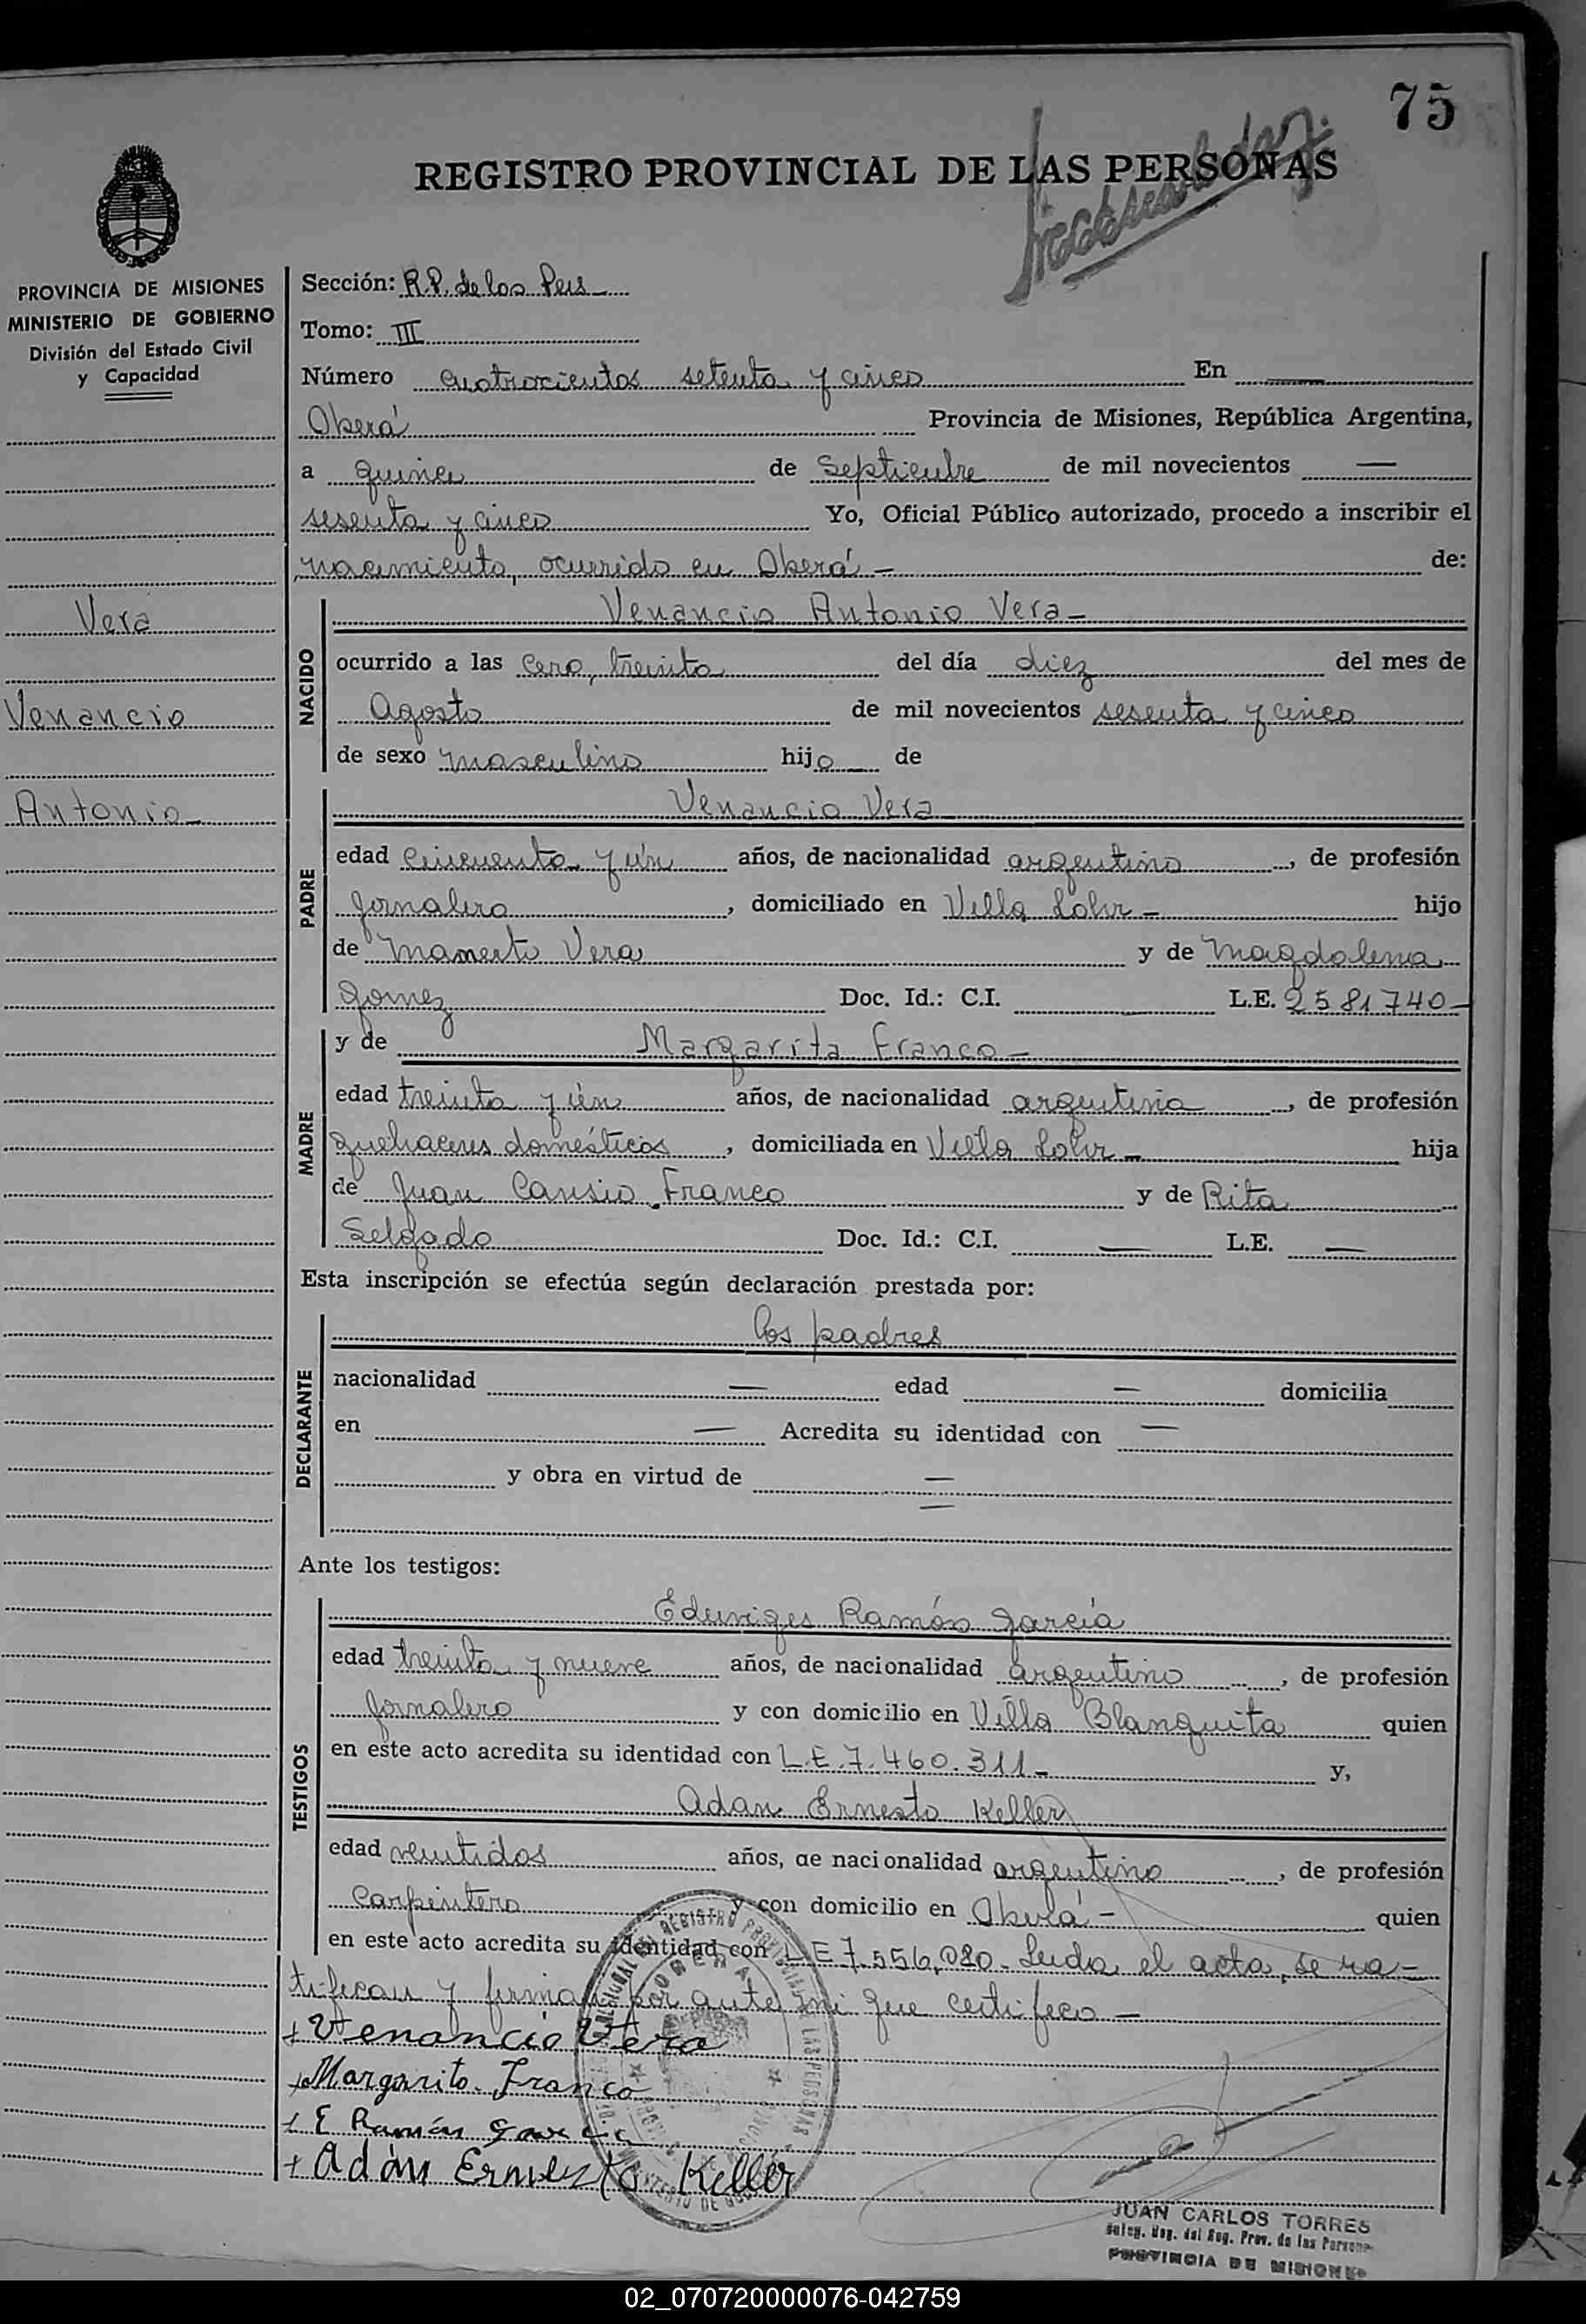 75
REGISTRO PROVINCIAL DE LAS PERSONAS
PROVINCIA DE MISIONES
MINISTERIO DE GOBIERNO
División del Estado Civil
y Capacidad
Vera
Venancio
Antonio
Sección: R.P. de las Pers
Tomo: III
Número cuatrocientos setenta y cinco En
Oberá Provincia de Misiones, República Argentina,
a quince de Septiembre de mil novecientos
sesenta y cinco Yo, Oficial Público autorizado, procedo a inscribir el
nacimiento, ocurrido en Oberá - de:
NACIDO
Venancio Antonio Vera
ocurrido a las cero, treinta del día diez del mes de
Agosto de mil novecientos sesenta y cinco
de sexo masculino hijo de
PADRE
Venancio Vera
edad cincuenta y un años, de nacionalidad argentino, de profesión
jornalero, domiciliado en Villa Lohr - hijo
de Mamerto Vera y de Magdalena
Gomez Doc. Id.: C.I. L.E. 2581740-
MADRE
y de Margarita Franco -
edad treinta y un años, de nacionalidad argentina, de profesión
quehaceres domésticos, domiciliada en Villa Lohr - hija
de Juan Franco y de Rita
Selgado Doc. Id.: C.I. — L.E. —
Esta inscripción se efectúa según declaración prestada por:
DECLARANTE
los padres
nacionalidad — edad — domicilia
en — Acredita su identidad con —
y obra en virtud de —
Ante los testigos:
TESTIGOS
Eduviges Ramón García
edad treinta y nueve años, de nacionalidad argentino, de profesión
jornalero y con domicilio en Villa Blanquita quien
en este acto acredita su identidad con L.E. 7.460.311- y,
Adan Ernesto Keller
edad veintidos años, de nacionalidad argentino, de profesión
Carpintero y con domicilio en Oberá - quien
en este acto acredita su identidad con L.E 7.556.080. Leida el acta, se ra-
tifican y firman por ante mi que certifico -
+ Venancio Vera
+ Margarita Franco
+ E Ramón Garcia
+ Adán Ernesto Keller
JUAN CARLOS TORRES
Deleg. Reg. del Reg. Prov. de las Personas
PROVINCIA DE MISIONES
02_070720000076-042759